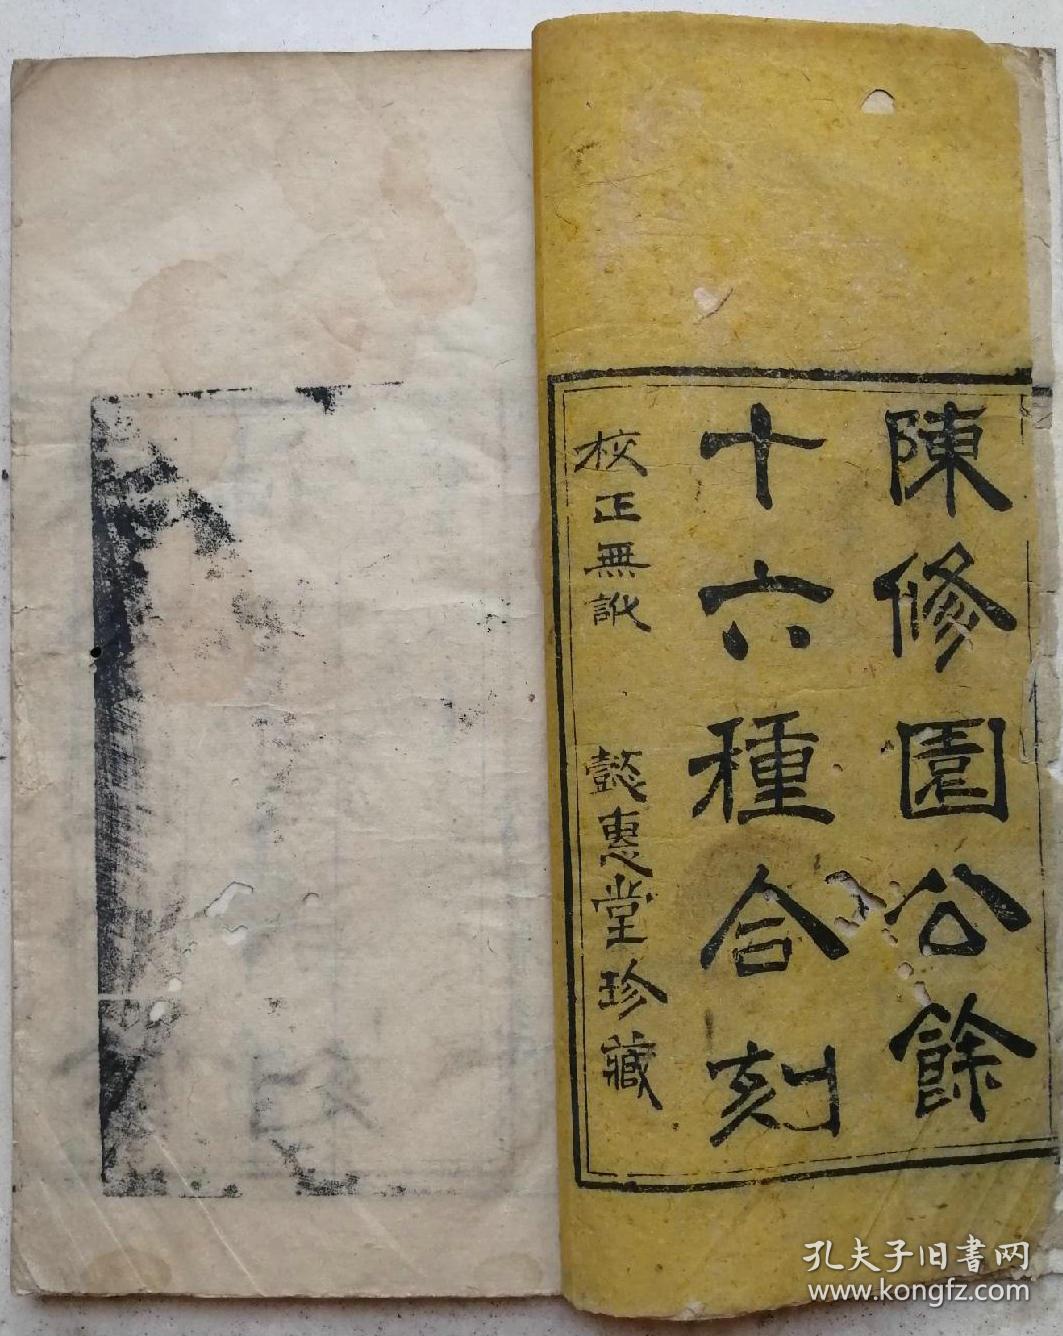 陳修園公餘
十六種合刻
校正無訛　懿惠堂珍藏
孔夫子旧書网
www.kongfz.com